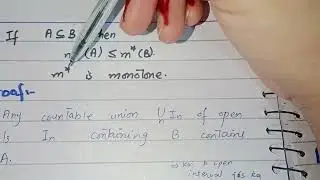 If A ⊆ B, then
m*(A) ≤ m*(B).
m* is monotone.
Proof:-
Any countable union ⋃ₙ In of open
Is In containing B contains
A.
open
interval jis ka